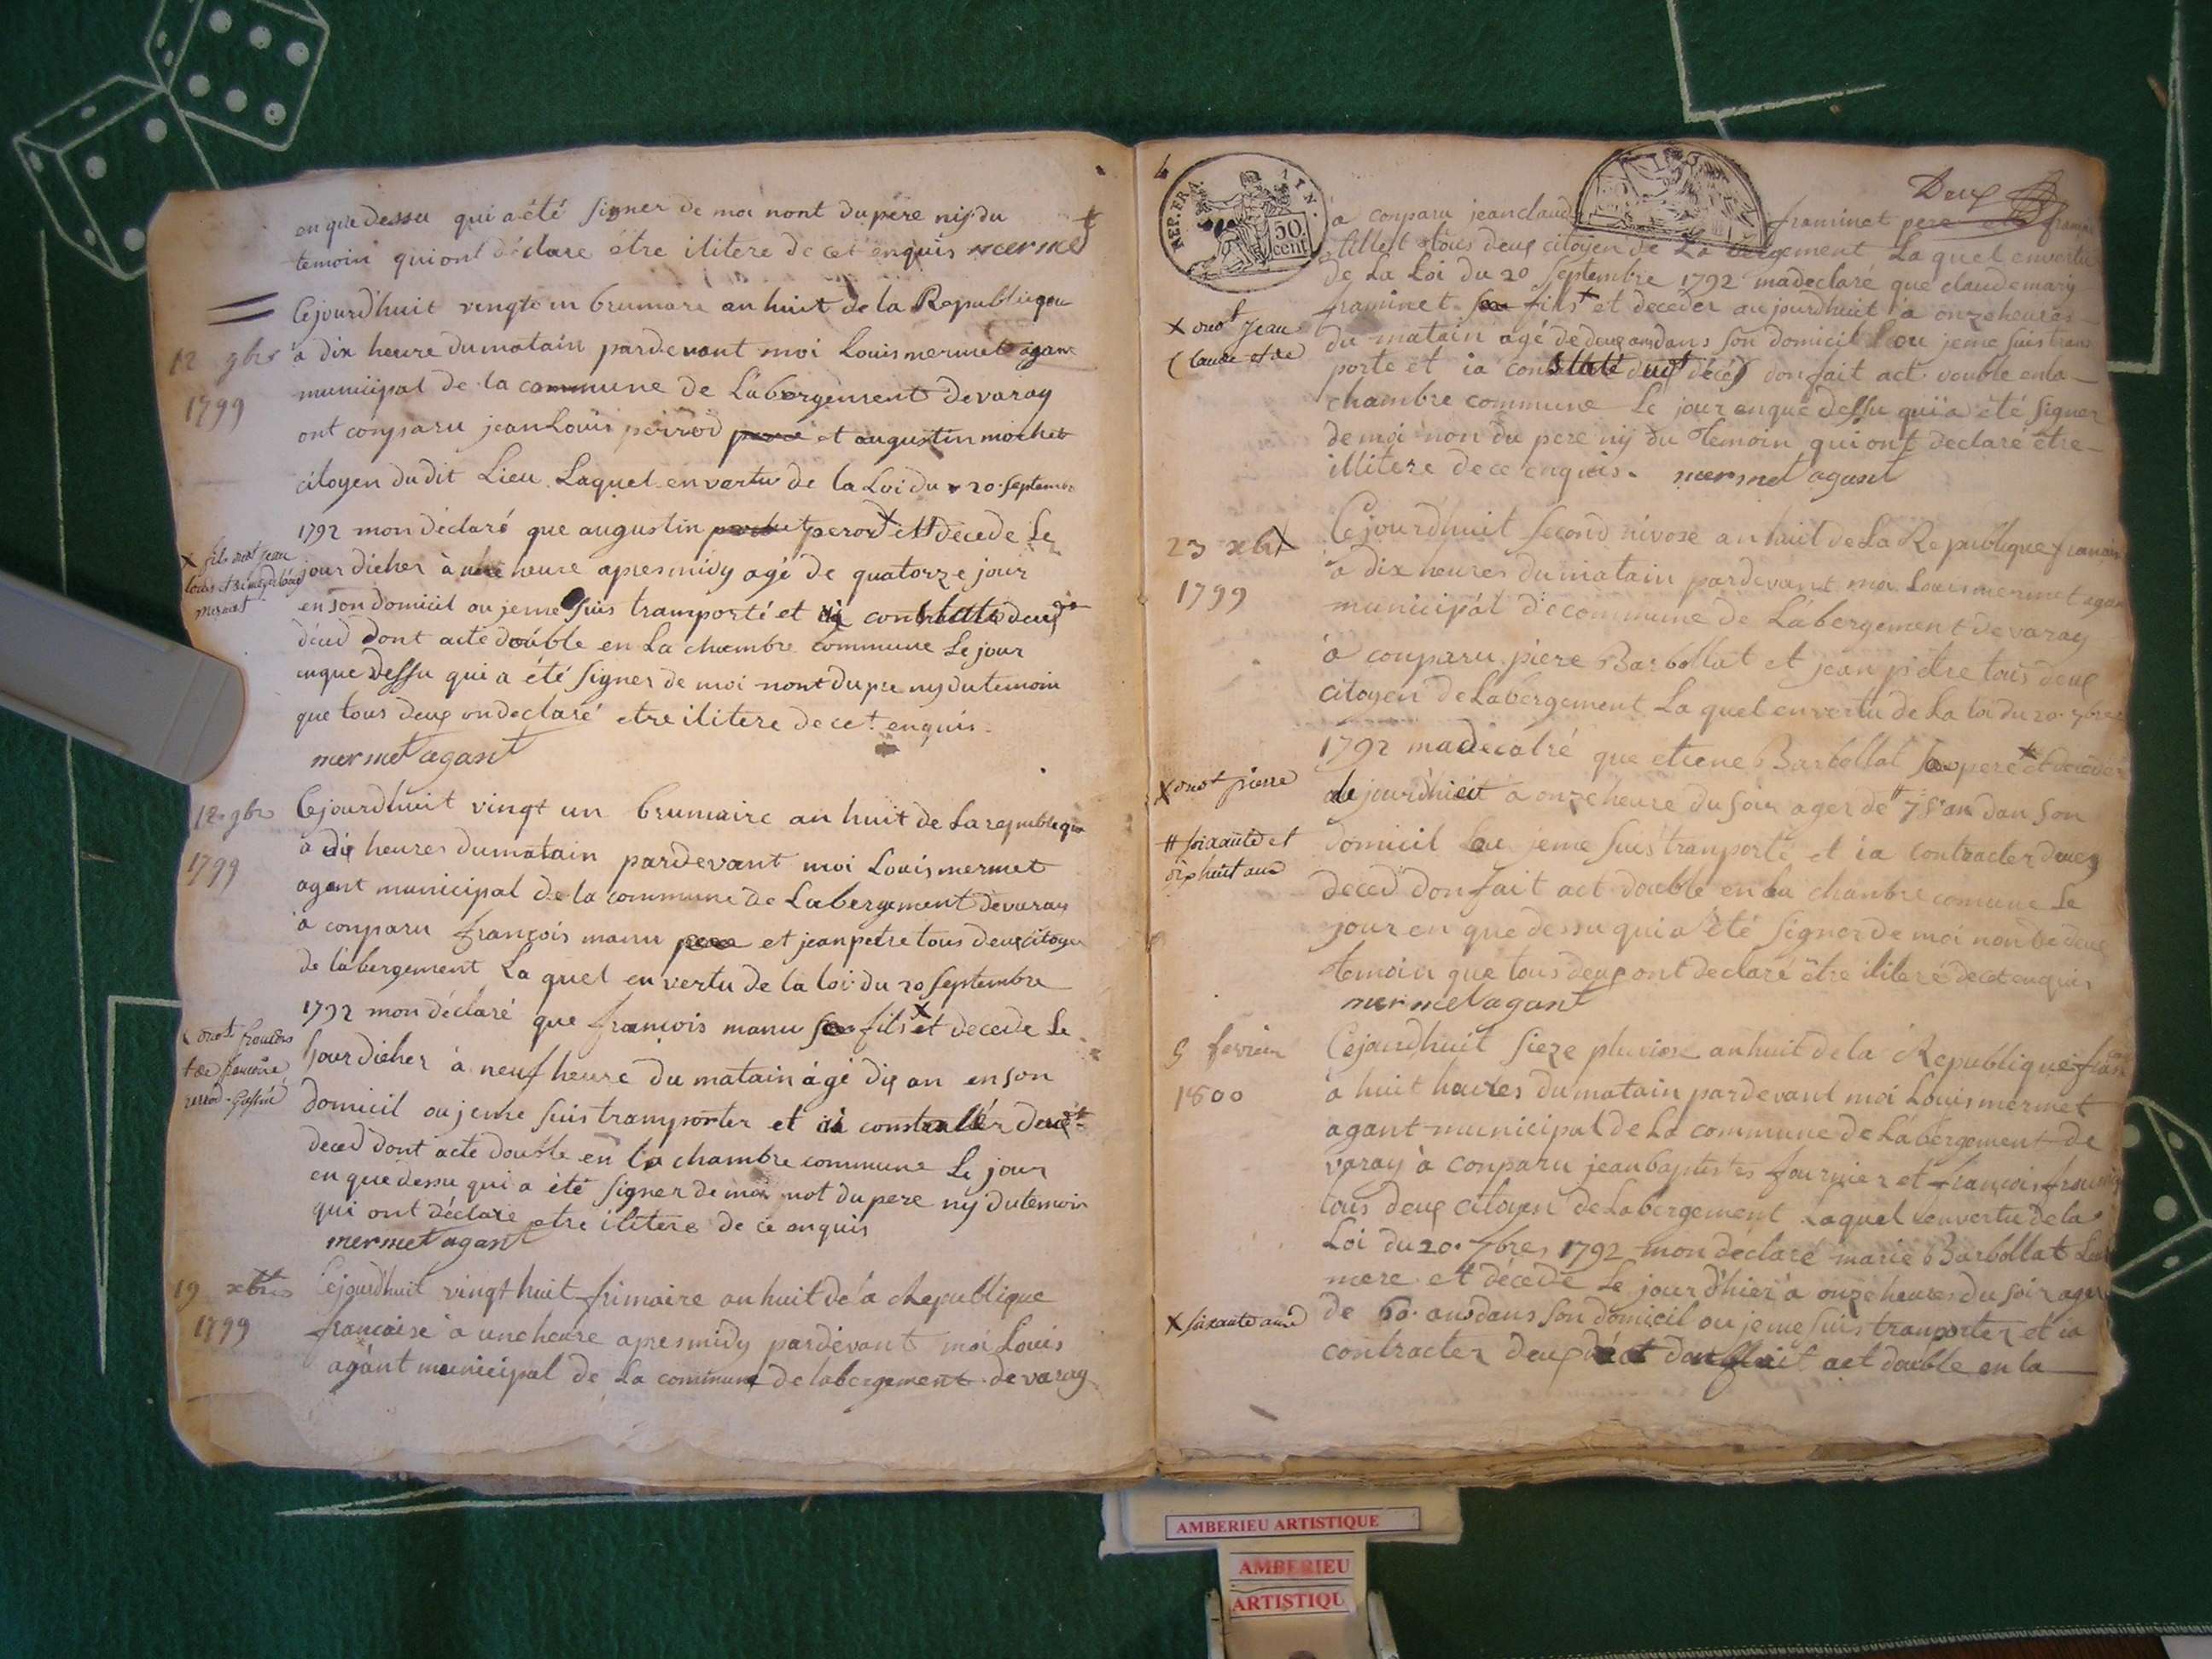 en que dessu qui a été signer de moi nont du pere ny du
temoin qui ont déclare étre ilitere de cet enquis mermet
Cejourdhuit vingte un brumare an huit de la Republique
12 gbre
à dix heure du matain pardevant moi Louis mermet agant
1799
municipal de la commune de Labergement devaray
ont conparu jean Louis perrod et augustin mochet
citoyen du dit Lieu Laquel en vertu de la Loi du 20 septembre
1792 mon déclaré que augustin perod X et décede Le
X fils
jour dieher à heure apres midy agé de quatorze jour
en son domicil ou jeme suis tramporté et
déced dont acte double en La chambre commune Le jour
enque dessu qui a été signer de moi nont du pre ny du temoin
que tous deux on declaré etre ilitere de cet enquis
mermet agant
12 gbre
Cejourdhuit vingt un brumaire an huit de la republique
1799
a dix heures du matain pardevant moi Louis mermet
agent municipal de la commune de Labergement devaray
à conparu françois manu et jean petre tous deux citoyen
de labergement La quel en vertu de la loi du 20 septembre
1792 mon déclaré que françois manu fils X et decede Le
jour dieher à neuf heure du matain àgé dix an en son
domicil ou jeme suis tramporter et
deced dont acte double en la chambre commune Le jour
en que dessu qui a été signer de moi not du pere ny du temoin
qui ont déclaré etre ilitere de ce enquis
mermet agant
19 xbre
Cejourdhuit vingt huit frimaire an huit de la Republique
1799
francaise à une heure apres midy pardevant moi Louis
agant municipal de La commune de labergement de varay
4
REP. FRA.
50 cent
Deux
a conparu jean claude framinet pere
tous deux citoyen de La bergement La quel en vertu
de La Loi du 20 septembre 1792 ma declaré que claude mary
framinet fils X et deceder aujourdhuit à onze heures
X Jean
Claude et de
du matain agé de deux ans dans son domicil ou jeme suis tran
porte et ia don fait act double en la
chambre commune Le jour enque dessu qui a été signer
de moi non du pere ny du temoin qui ont declaré étre
illitere de ce enquis. mermet agant
23 xbre
Cejourdhuit second nivose an huit de La Republique francais
1799
à dix heures du matain pardevant moi Louis mermet agan
municipál de commune de Labergement de varay
à conparu piere Barbollat et jean petre tous deux
citoyen de Labergement La quel en vertu de La loi du 20 7bre
1792 ma que etiene Barbollat pere X et
X pierre
à onze heure du soir ager de # 78 an dan son
# soixante et
dix huit ans
domicil ou jeme suis tranporté et ia contracter
deced don fait act double en La chambre comune Le
jour en que dessu qui a été signer de moi non de deux
temoin que tous deux ont declaré être ilitere de cet enquis
mermet agant
5 fevrier
Cejourdhuit sieze pluviose an huit de la Republique
1800
à huit heures du matain pardevant moi Louis mermet
agant municipal de La commune de Labergement de
varay à conparu jean baptiste fournier et françois
tous deux citoyen de Labergement Laquel en vertu de la
Loi du 20 7bres 1792 mon déclaré marie Barbollat
mere et décede Le jour d'hier à onze heures du soir ager
X soixante ans
de 60 ans dans son domicil ou jeme suis tranporter et ia
contracter act double en la
AMBERIEU ARTISTIQUE
AMBERIEU
ARTISTIQU